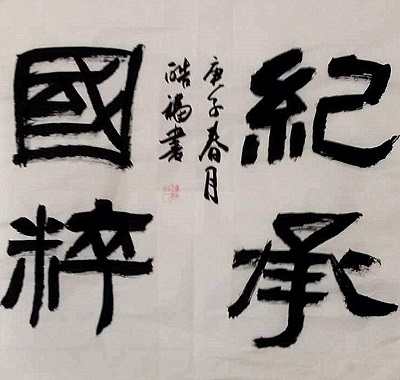 紀承
國粹
庚子春月
皓福書